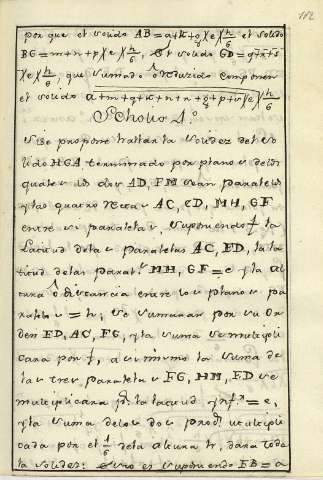 112
porque el solido AB=a+k+q×e×h/6 el solido
BG=m+n+p×e×h/6, el solido GD=
×e×h/6, que sumado ô reduzido componen
el solido a+m+q+k+n+n+q+p+r×e×h/6
Scholio 4.º
Si se propone hallar la solidez del so
lido HGA terminado por planos delos
quales los dos AD, FM sean paralelos
y las quatro rectas AC, CD, MH, GF
entre si paralelas, suponiendo f la
latitud delas paralelas AC, ED, la la
titud de las paral.s MH, GF=e y la al
tura ô distancia entre los planos pa
ralelos = h, se sumaran por su or
den ED, AC, FG, y la suma se multipli
cara por f, asi mismo la suma de
las tres paralelas FG, HM, ED se
multiplicara p.r la latitud = e,
y la suma delos dos prod.s multipli
cada por el 1/6 dela altura h, dara toda
la solidez: es suponiendo EB=a